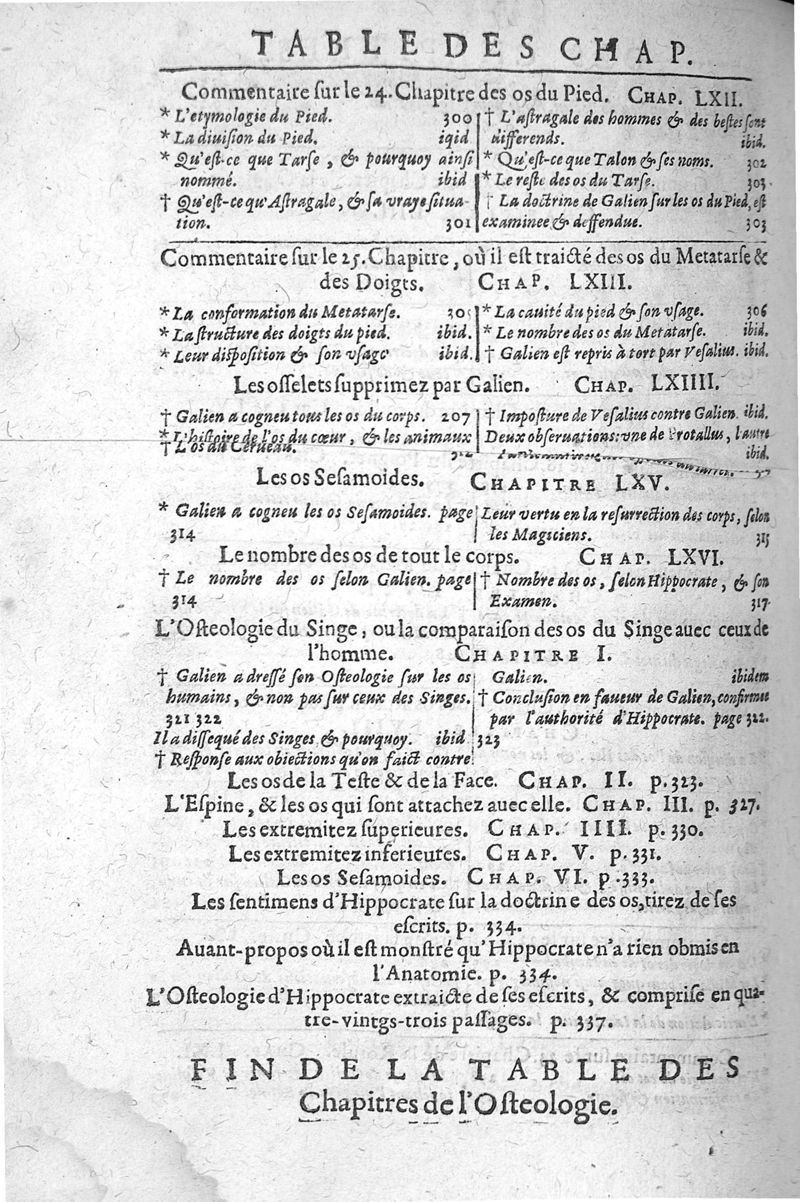 TABLE DES CHAP.
Commentaire ſur le 24. Chapitre des os du Pied. CHAP. LXII.
* L'etymologie du Pied. 300
* La diuiſion du Pied. iqid
* Qu'eſt-ce que Tarſe, & pourquoy ainſi
nommé. ibid
† Qu'eſt-ce qu'Aſtragale, & ſa vraye ſitua-
tion. 301
† L'aſtragale des hommes & des beſtes ſont
differends. ibid.
* Qu'eſt-ce que Talon & ſes noms. 302
* Le reſte des os du Tarſe. 303
† La doctrine de Galien ſur les os du Pied, eſt
examinee & deffendue. 303
Commentaire ſur le 25. Chapitre, où il est traicté des os du Metatarſe &
des Doigts. CHAP. LXIII.
* La conformation du Metatarſe. 305
* La ſtructure des doigts du pied. ibid.
* Leur diſpoſition & ſon vſage ibid.
* La cauité du pied & ſon vſage. 306
* Le nombre des os du Metatarſe. ibid.
† Galien eſt repris à tort par Veſalius. ibid.
Les oſſelets ſupprimez par Galien. CHAP. LXIIII.
† Galien a cogneu tous les os du corps. 207
* L'hiſtoire de l'os du cœur, & les animaux
† L'os du Cerueau.
† Impoſture de Veſalius contre Galien. ibid.
Deux obſeruations: vne de Protallus, l'autre
ibid.
Les os Seſamoides. CHAPITRE LXV.
* Galien a cogneu les os Seſamoides. page
314
Leur vertu en la reſurrection des corps, ſelon
les Magiciens. 315
Le nombre des os de tout le corps. CHAP. LXVI.
† Le nombre des os ſelon Galien. page
314
† Nombre des os, ſelon Hippocrate, & ſon
Examen. 317
L'Oſteologie du Singe, ou la comparaiſon des os du Singe auec ceux de
l'homme. CHAPITRE I.
† Galien a dreſſé ſon Oſteologie ſur les os
humains, & non pas ſur ceux des Singes.
321 322
Il a diſſequé des Singes & pourquoy. ibid
† Reſponſe aux obiections qu'on faict contre
Galien. ibidem
† Concluſion en faueur de Galien, confirmee
par l'authorité d'Hippocrate. page 322.
323
Les os de la Teſte & de la Face. CHAP. II. p. 323.
L'Eſpine, & les os qui ſont attachez auec elle. CHAP. III. p. 327.
Les extremitez ſuperieures. CHAP. IIII. p. 330.
Les extremitez inferieures. CHAP. V. p. 331.
Les os Seſamoides. CHAP. VI. p .333.
Les ſentimens d'Hippocrate ſur la doctrine des os, tirez de ſes
eſcrits. p. 334.
Auant-propos où il eſt monſtré qu'Hippocrate n'a rien obmis en
l'Anatomie. p. 334.
L'Oſteologie d'Hippocrate extraicte de ſes eſcrits, & compriſe en qua-
tre-vintgs-trois paſſages. p. 337.
FIN DE LA TABLE DES
Chapitres de l'Oſteologie.